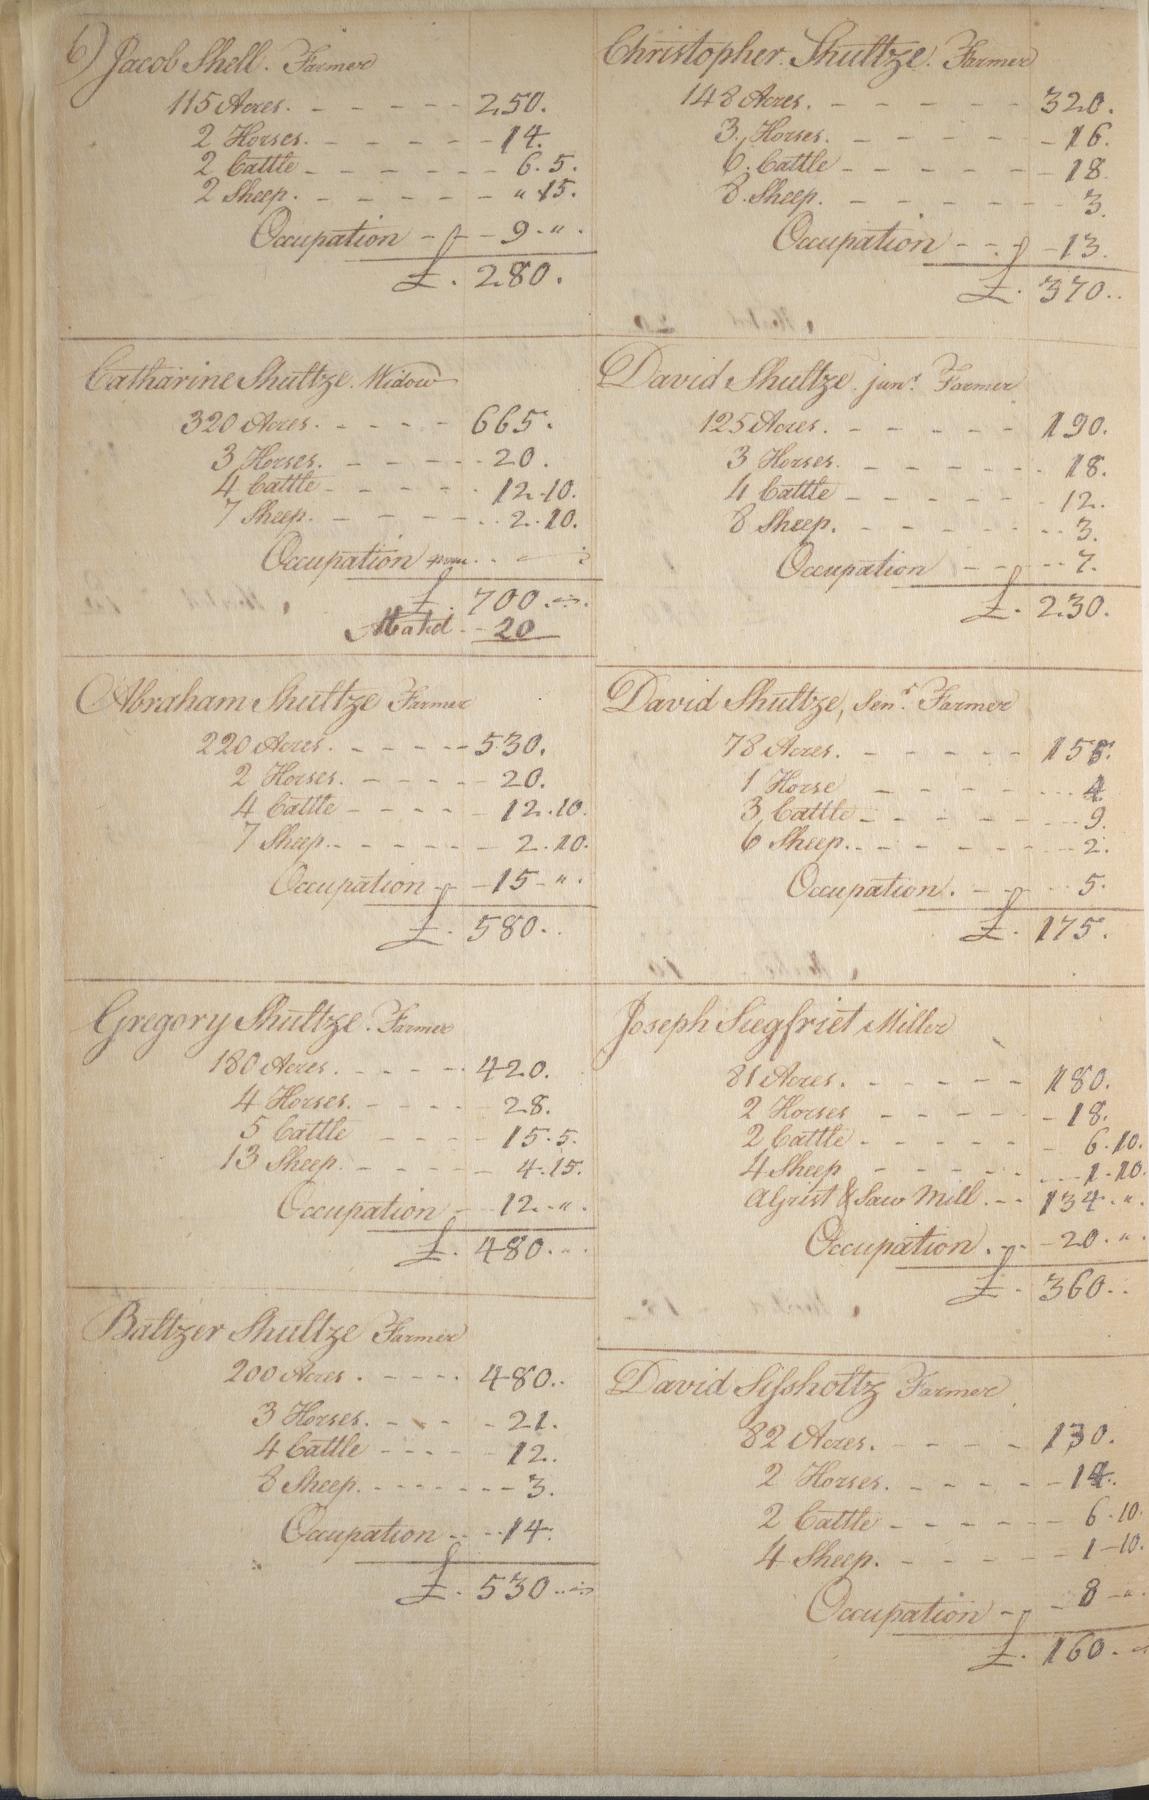 6) Jacob Shell. Farmer
115 Acres. - - - - - 250.
2 Horses. - - - - - 14.
2 Cattle - - - - - - 6. 5.
2 Sheep. - - - - - - " 15.
Occupation - - - 9 - " .
£. 280.
Catharine Shultze. Widow
320 Acres. - - - - 665.
3 Horses. - - - - - 20.
4 Cattle - - - - - 12. 10.
7 Sheep. - - - - - . 2. 10.
Occupation
£. 700.
20
Abraham Shultze Farmer
220 Acres. - - - - - 530.
2 Horses. - - - - - 20.
4 Cattle - - - - - 12. 10.
7 Sheep. - - - - - - 2. 10.
Occupation - - 15 - " .
£. 580.
Gregory Shultze. Farmer
180 Acres. - - - - - 420.
4 Horses. - - - - - 28.
5 Cattle - - - - - 15. 5.
13 Sheep. - - - - - - 4. 15.
Occupation - - 12. - " .
£. 480.
Baltzer Shultze Farmer
200 Acres. - - - - 480.
3 Horses. - - - - 21.
4 Cattle - - - - - 12.
8 Sheep. - - - - - - - 3.
Occupation - - - 14.
£. 530
Christopher. Shultze. Farmer
148 Acres. - - - - - - 320.
3. Horses. - - - - - - 16.
6. Cattle - - - - - - - 18.
8. Sheep. - - - - - - - 3.
Occupation - - - 13.
£. 370.
David Shultze. junr. Farmer
125 Acres. - - - - - 190.
3 Horses. - - - - - - 18.
4 Cattle - - - - - - 12.
8 Sheep. - - - - - - - 3.
Occupation - - - - 7.
£. 230.
David Shultze, Senr. Farmer
78 Acres. - - - - - 155.
1 Horse - - - - - 4
3 Cattle - - - - - - 9.
6 Sheep. - - - - - - 2.
Occupation. - - - 5.
£. 175.
Joseph Siegfriet Miller
81 Acres. - - - - - 180.
2 Horses - - - - - - 18.
2 Cattle - - - - - - 6. 10.
4 Sheep - - - - - - 1. 10
A Grist & Saw Mill. - - 134. " .
Occupation. - - 20. " .
£. 360.
David Sissholtz Farmer
82 Acres. - - - - - 130.
2 Horses. - - - - - - 14.
2 Cattle - - - - - - - 6. 10.
4 Sheep. - - - - - - - 1 - 10.
Occupation - - 8 - " .
£. 160.